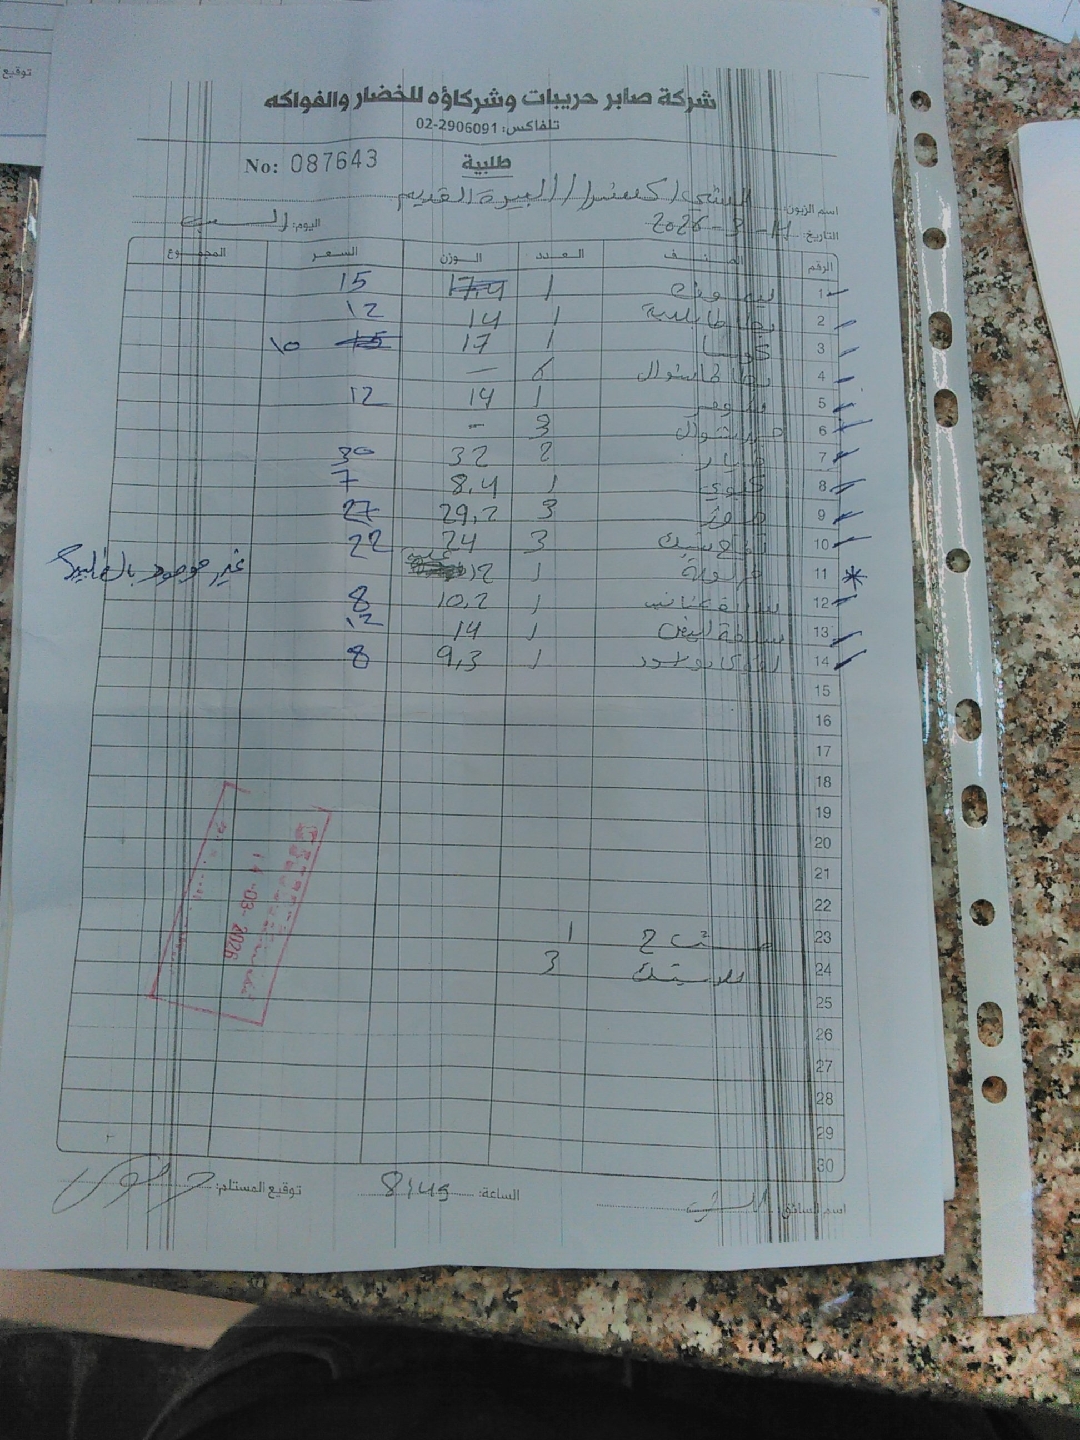 توقيع
شركة صابر حريبات وشركاؤه للخضار والفواكه
تلفاكس: 02-2906091
طلبية
No: 087643
اسم الزبون: / البيرة القديم
التاريخ: 14-3-2026 اليوم: السبت
الرقم الصنف العدد الوزن السعر المجموع
1 ليمون 1 17,4 15
2 بطاطا 1 14 12
3 كوسا 1 17 15 10
4 بطاطا شوال 6 —
5 1 14 12
6 جزر شوال 3 -
7 خيار 2 32 30
8 كيوي 1 8,4 7
9 موز 3 29,2 27
10 تفاح 3 24 22
11 1 12 غير موجود
12 1 10,2 8
13 بصلة ابيض 1 14 12
14 1 9,3 8
15
16
17
18
19
20
21
22
23 مشتاح 1
24 بلاستيك 3
25
26
27
28
29
30
14-03-2026
اسم السائق: الساعة: 8:45 توقيع المستلم: